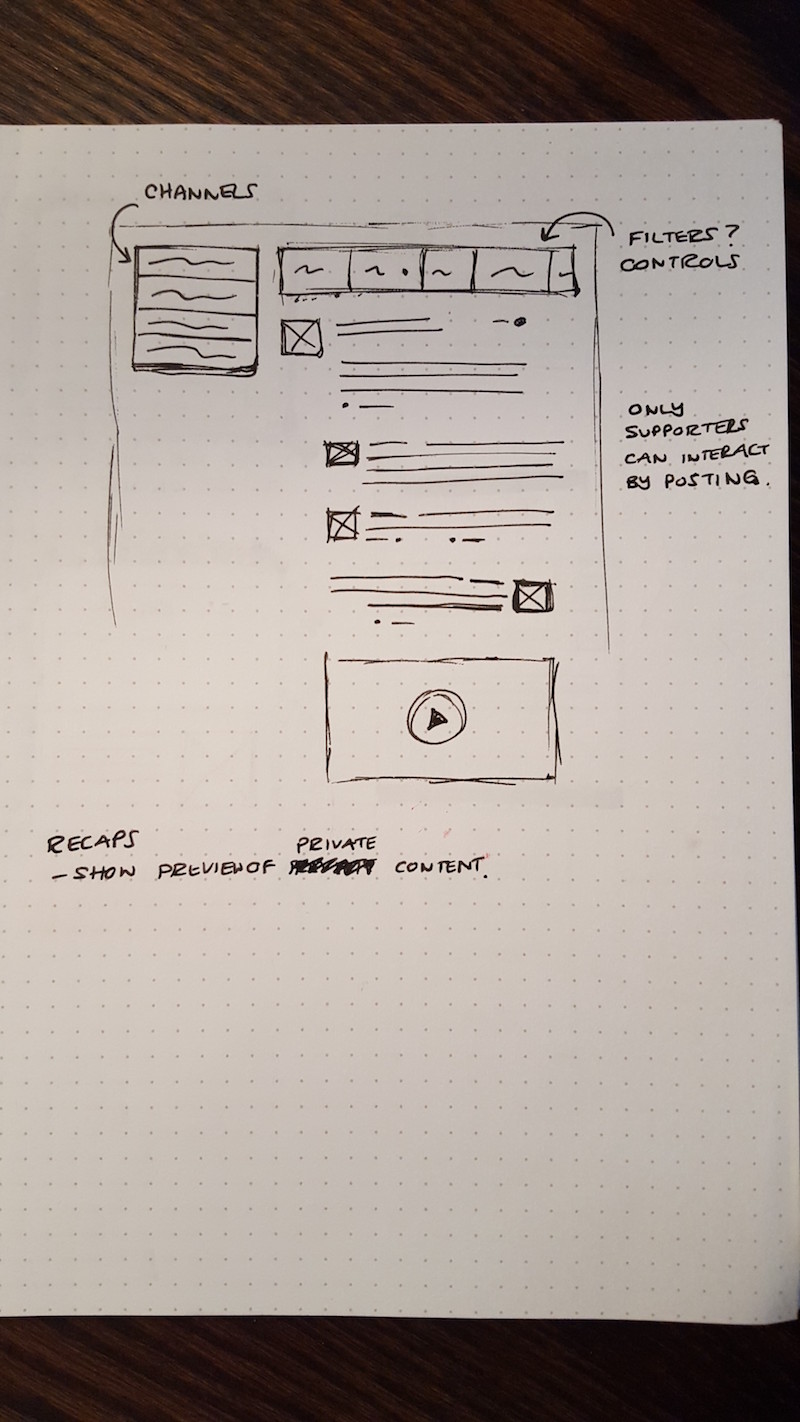 CHANNELS
FILTERS?
CONTROLS
ONLY
SUPPORTERS
CAN INTERACT
BY POSTING.
RECAPS
PRIVATE
- SHOW PREVIEW OF CONTENT.